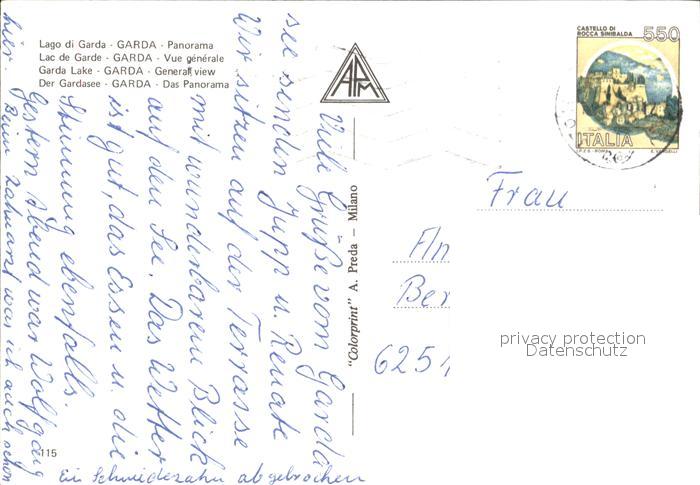 Lago di Garda - GARDA - Panorama
Lac de Garde - GARDA - Vue générale
Garda Lake - GARDA - General view
Der Gardasee - GARDA - Das Panorama
APM
CASTELLO DI
ROCCA SINIBALDA
550
ITALIA
I.P.Z.S. - ROMA
"Colorprint" A. Preda - Milano
115
Viele Grüße vom Garda
see senden Jupp u. Renate
Wir sitzen auf der Terrasse
mit wunderbarem Blick
auf den See. Das Wetter
ist gut, das Essen u. die
Stimmung ebenfalls.
Gestern Abend war Wolfgang
hier. Beim Zahnarzt war ich auch schon
Ein Schneidezahn abgebrochen
Frau
An
Ber
6251
privacy protection
Datenschutz